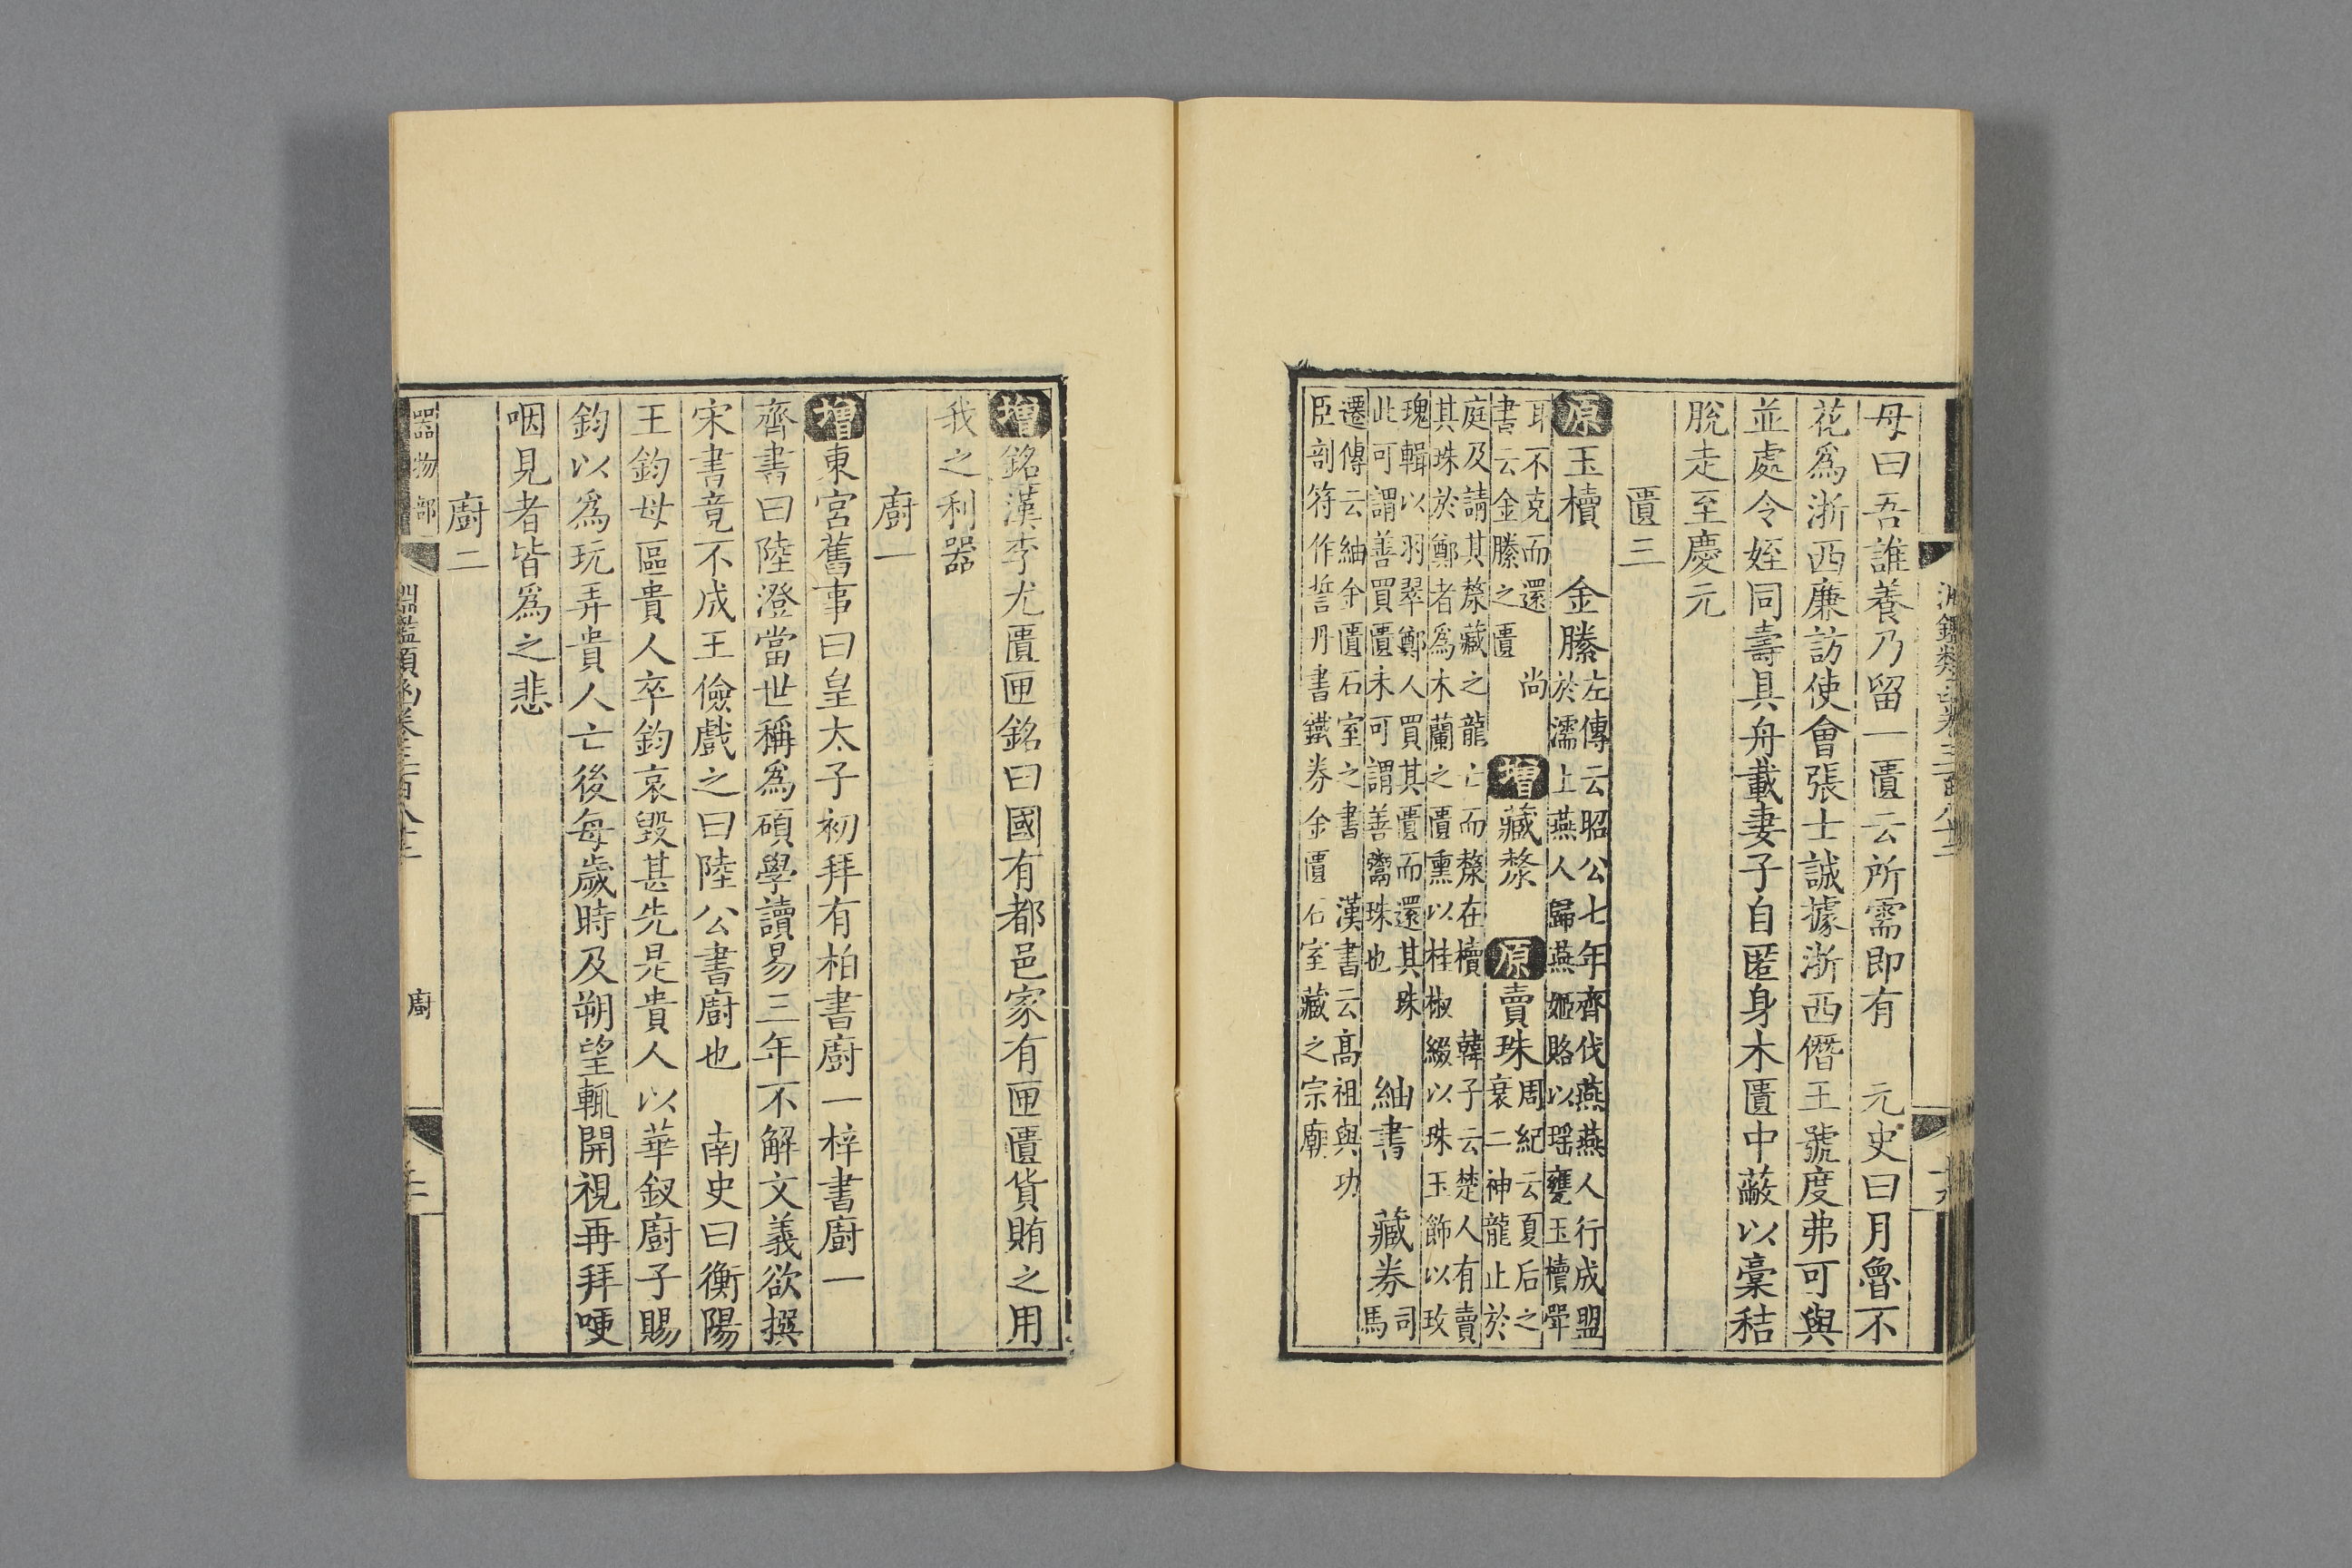 母曰吾誰養乃留一匱云所需即有　元史曰月魯不
花爲浙西廉訪使會張士誠據浙西僭王號度弗可與
並處令姪同壽具舟載妻子自匿身木匱中蔽以藁秸
脫走至慶元
匱三
原玉櫝　金縢
左傳云昭公七年齊伐燕燕人行成盟
於濡上燕人歸燕姬賂以瑶甕玉櫝斝
耳不克而還　尚
書云金縢之匱
增藏漦　原賣珠
周紀云夏后之
衰二神龍止於
庭及請其漦藏之龍亡而漦在櫝　韓子云楚人有賣
其珠於鄭者爲木蘭之匱熏以桂椒綴以珠玉飾以玫
瑰輯以羽翠鄭人買其匱而還其珠
此可謂善買匱未可謂善鬻珠也
紬書　藏券
司
馬
遷傳云紬金匱石室之書　漢書云高祖與功
臣剖符作誓丹書鐵券金匱石室藏之宗廟
增銘漢李尤匱匣銘曰國有都邑家有匣匱貨賄之用
我之利器
廚一
增東宮舊事曰皇太子初拜有柏書廚一梓書廚一
齊書曰陸澄當世稱爲碩學讀易三年不解文義欲撰
宋書竟不成王儉戲之曰陸公書廚也　南史曰衡陽
王鈞母區貴人卒鈞哀毀甚先是貴人以華釵廚子賜
鈞以爲玩弄貴人亡後每歲時及朔望輒開視再拜哽
咽見者皆爲之悲
廚二
器物部　淵鑑類函卷三百八十二　廚